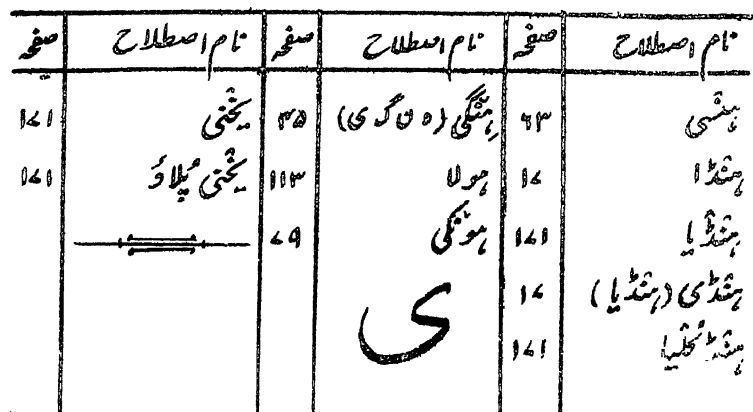 نام اصطلاح صفحہ نام اصطلاح صفحہ نام اصطلاح صفحہ
ہنسی ۶۳ ہنگی (ہ ن گ ی) ۳۵ یخنی ۱۷۱
ہنڈا ۱۷ ہولا ۱۱۳ یخنی پُلاؤ ۱۷۱
ہنڈیا ۱۷۱ ہونگی ۷۹
ہنڈی (ہنڈیا) ۱۷ ی
ہنڈ کُلیا ۱۷۱